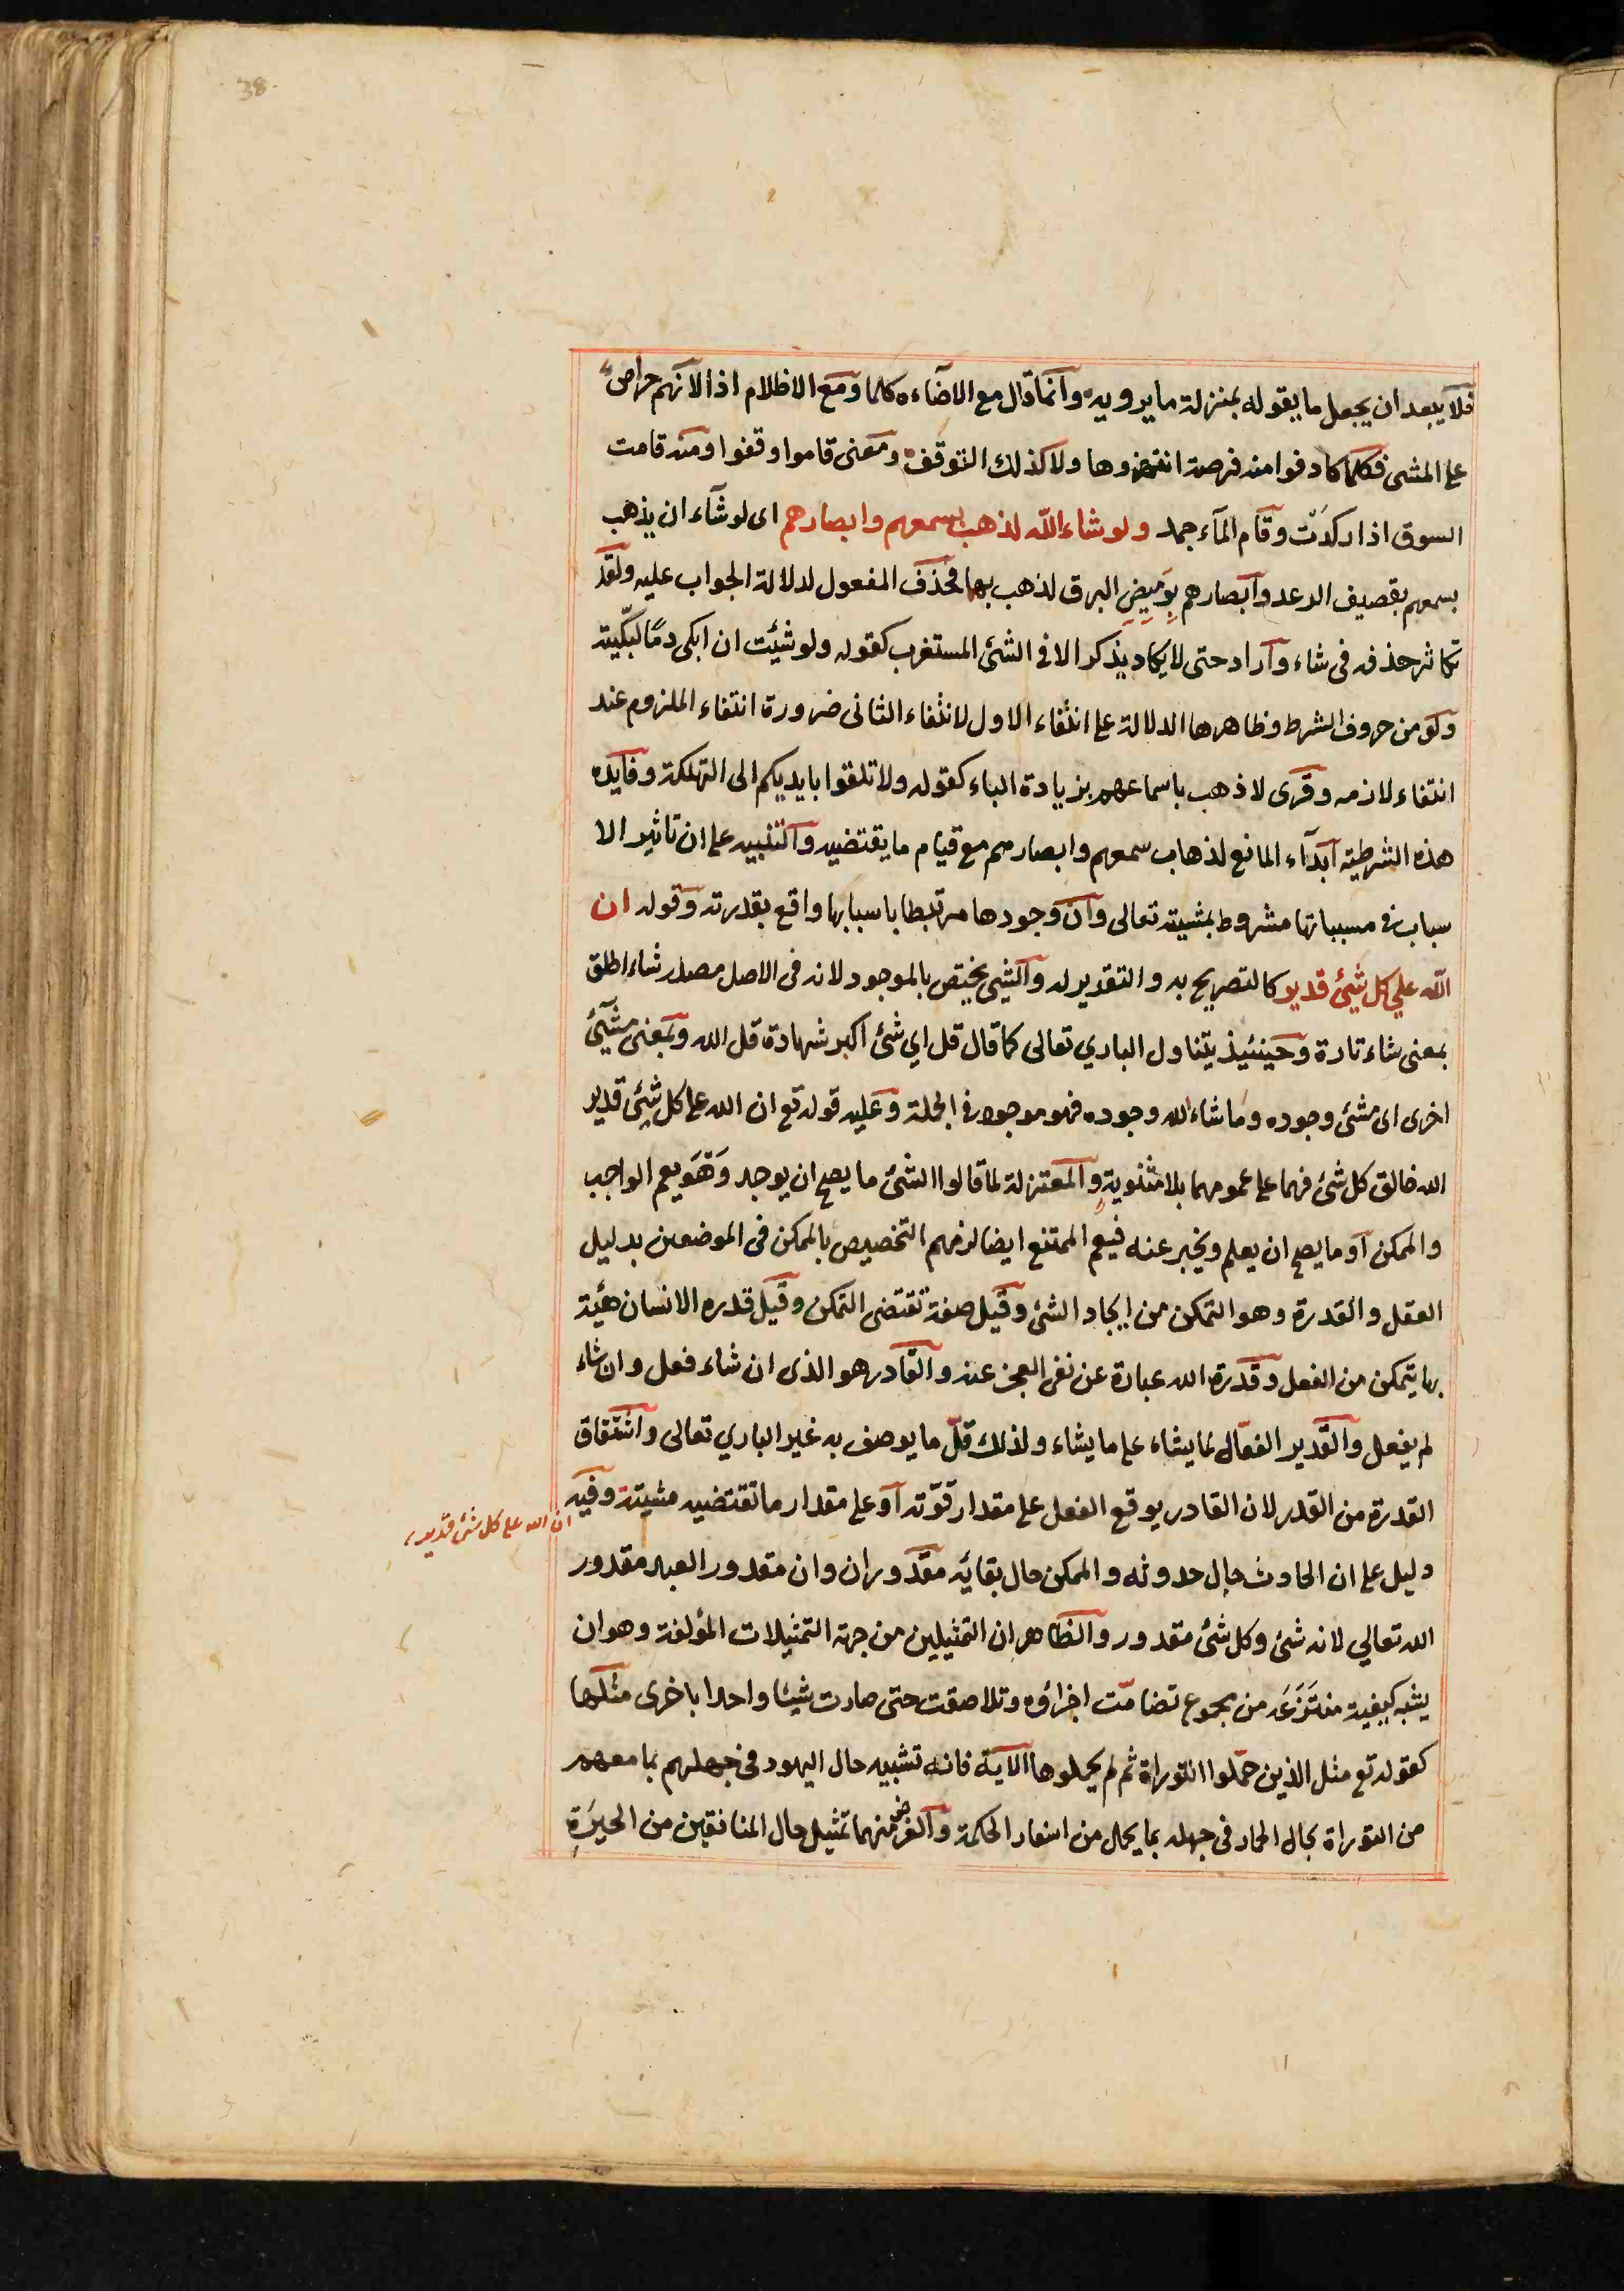 38
فلا يبعد ان يجعل ما يقوله بمنزلة ما يرويه وانما قال مع الاضاءه كلما ومع الاظلام اذا لانهم حراص
على المشى فكلما صادفوا منه فرصة انتهزوها ولا كذلك التوقف ومعنى قاموا وقفوا ومنه قامت
السوق اذا ركدت وقام الماء جمد ولو شاء الله لذهب بسمعهم وابصارهم اى لو شاء ان يذهب
بسمعهم بقصيف الرعد وابصارهم بوميض البرق لذهب بهما فحذف المفعول لدلالة الجواب عليه ولقد
تكاثر حذفه فى شاء واراد حتى لا يكاد يذكر الا فى الشئ المستغرب كقوله ولو شئت ان ابكى دما لبكيته
ولو من حروف الشرط وظاهرها الدلالة على انتفاء الاول لانتفاء الثانى ضرورة انتفاء الملزوم عند
انتفاء لازمه وقرى لاذهب باسماعهم بزيادة الباء كقوله ولا تلقوا بايديكم الى التهلكة وفايده
هذه الشرطية ابداء المانع لذهاب سمعهم وابصارهم مع قيام ما يقتضيه والتنبيه على ان تاثير الا
سباب فى مسبباتها مشروط بمشيته تعالى وان وجودها مرتبطا باسبابها واقع بقدرته وقوله ان
الله علي كل شيئ قدير كالتصريح به والتقدير له والشئ يختص بالموجود لانه فى الاصل مصدر شاء اطلق
بمعنى شاء تارة وحينئيذ يتناول الباري تعالى كما قال قل اي شئ اكبر شهادة قل الله وبمعنى مشيئ
اخرى اى مشئ وجوده وما شاء الله وجوده فهو موجود فى الجملة وعليه قوله تع ان الله على كل شيئ قدير
الله خالق كل شئ فهما على عمومهما بلا مثنوية والمعتزلة لما قالوا الشئ ما يصح ان يوجد وهو يعم الواجب
والممكن او ما يصح ان يعلم ويخبر عنه فيعم الممتنع ايضا لزمهم التخصيص بالممكن فى الموضعين بدليل
العقل والقدرة وهو التمكن من ايجاد الشئ وقيل صفة تقتضى التمكن وقيل قدره الانسان هيئة
بها يتمكن من الفعل وقدرة الله عبارة عن نفى العجز عنه والقادر هو الذى ان شاء فعل وان شاء
لم يفعل والقدير الفعال لما يشاء على ما يشاء ولذلك قل ما يوصف به غير الباري تعالى واشتقاق
القدرة من القدر لان القادر يوقع الفعل على مقدار قوته او على مقدار ما تقتضيه مشيته وفيه
ان الله على كل شئ قدير
دليل على ان الحادث حال حدوثه والممكن حال بقائه مقدوران وان مقدور العبد مقدور
الله تعالي لانه شئ وكل شئ مقدور والظاهر ان التمثيلين من جهة التمثيلات المؤلفة وهو ان
يشبه كيفية منتزعه من مجموع تضامت اجزاؤه وتلاصقت حتى صارت شيئا واحدا باخرى مثلها
كقوله تع مثل الذين حملوا التوراة ثم لم يحملوها الاية فانه تشبيه حال اليهود فى جهلهم بما معهم
من التوراة بحال الحمار فى جهله بما يحمل من اسفار الحكمة والغرض منهما تمثيل حال المنافقين من الحيرة